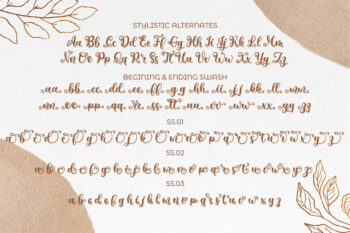 STYLISTIC ALTERNATES
Aa Bb Cc Dd Ee Ff Gg Hh Ii Jj Kk Ll Mm
Nn Oo Pp Qq Rr Ss Tt Uu Vv Ww Xx Yy Zz
BEGINING & ENDING SWASH
aa. bb. cc. dd. ee. ff. gg hh. ii. jj kk. ll.
mm. nn. oo. pp. qq. rr. ss. tt. uu. vv. ww. xx. yy zz
SS.01
SS.02
a b c d e f g h i j k l m n o p q r s t u v w x y z
SS.03
a b c d e f g h i j k l m n o p q r s t u v w x y z